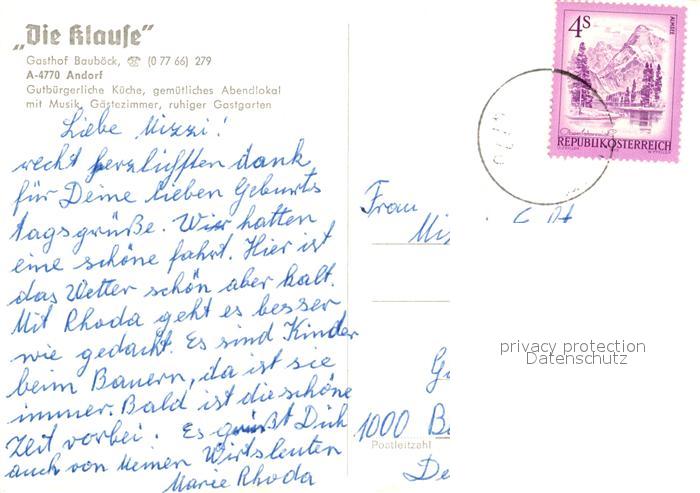 „Die Klause”
Gasthof Bauböck, ☎ (0 77 66) 279
A-4770 Andorf
Gutbürgerliche Küche, gemütliches Abendlokal
mit Musik, Gästezimmer, ruhiger Gastgarten
Liebe Mizzi!
recht herzlichsten dank
für Deine lieben Geburts
tagsgrüße. Wir hatten
eine schöne fahrt. Hier ist
das Wetter schön aber kalt.
Mit Rhoda geht es besser
wie gedacht. Es sind Kinder
beim Bauern, da ist sie
immer. Bald ist die schöne
Zeit vorbei. Es grüßt Dich
auch von Meinen Wirtsleuten
Marie Rhoda
4S
ALMSEE
REPUBLIK ÖSTERREICH
Frau
1000 B
Postleitzahl
privacy protection
Datenschutz